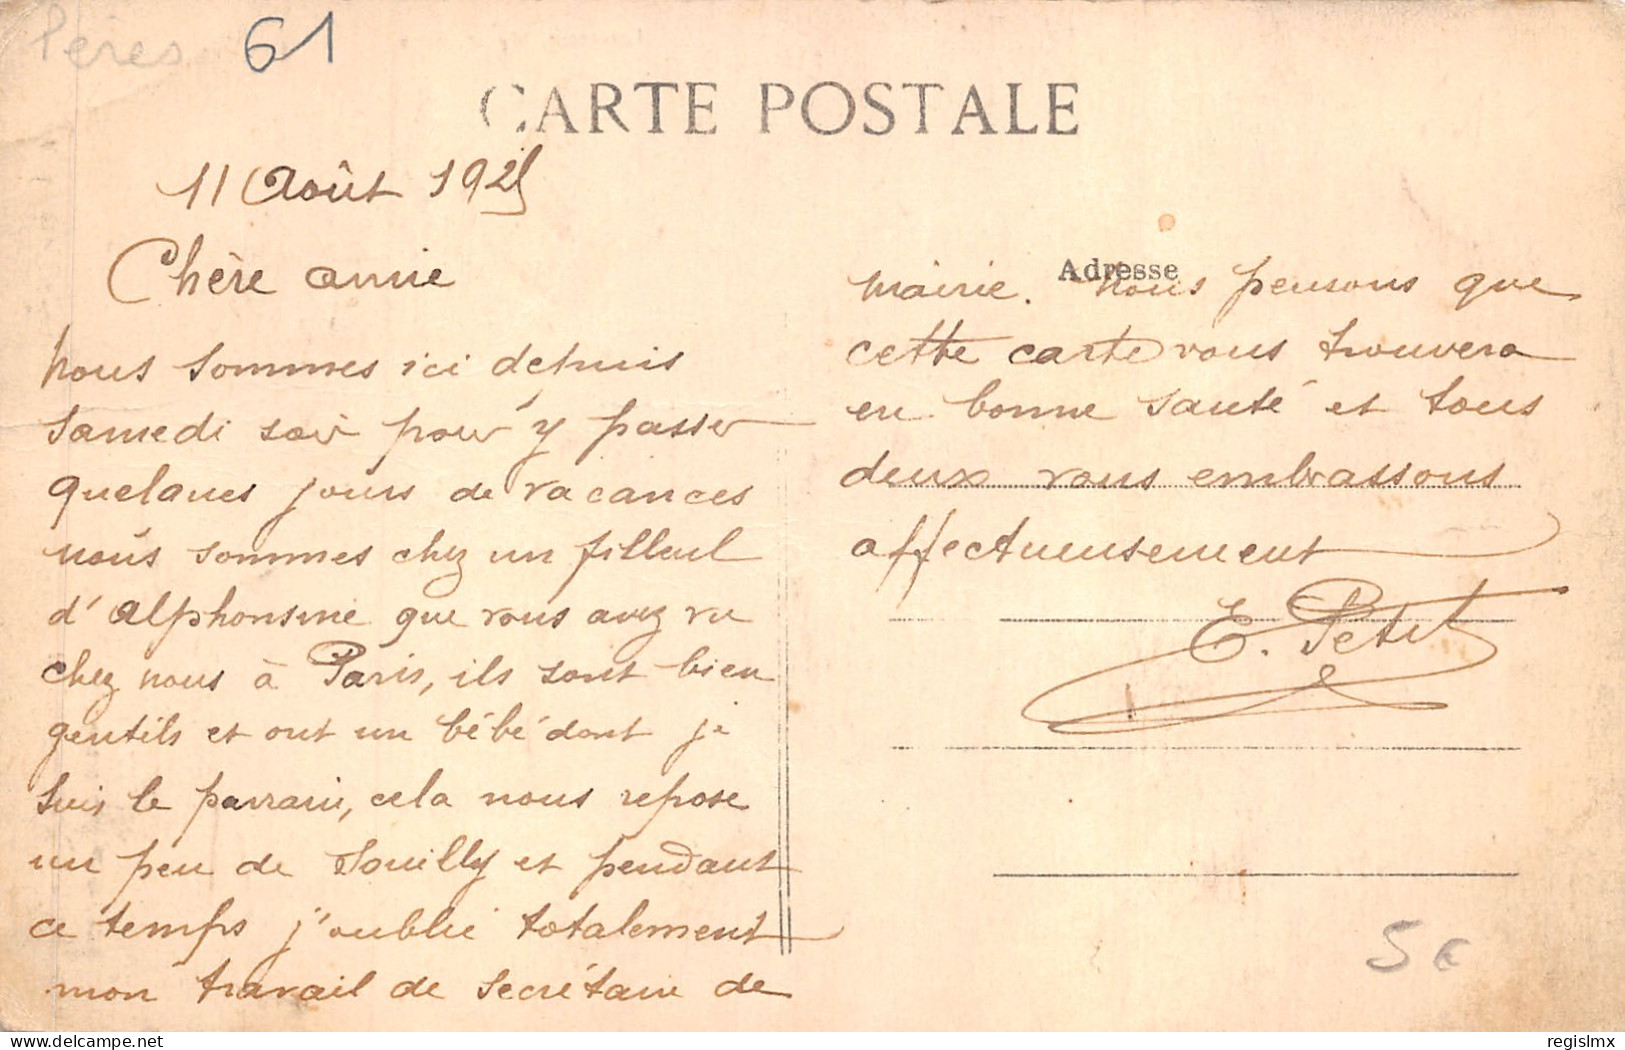 Pères 61
CARTE POSTALE
11 Août 1925
Chère amie
Nous sommes ici depuis
samedi soir pour y passer
quelques jours de vacances
nous sommes chez un filleul
d'Alphonsine que vous avez vu
chez nous à Paris, ils sont bien
gentils et ont un bébé dont je
suis le parrain, cela nous repose
un peu de Souilly et pendant
ce temps j'oublie totalement
mon travail de secrétaire de
Adresse
mairie. Nous pensons que
cette carte vous trouvera
en bonne santé et tous
deux vous embrassons
affectueusement
E. Petit
5€
delcampe.net
regislmx